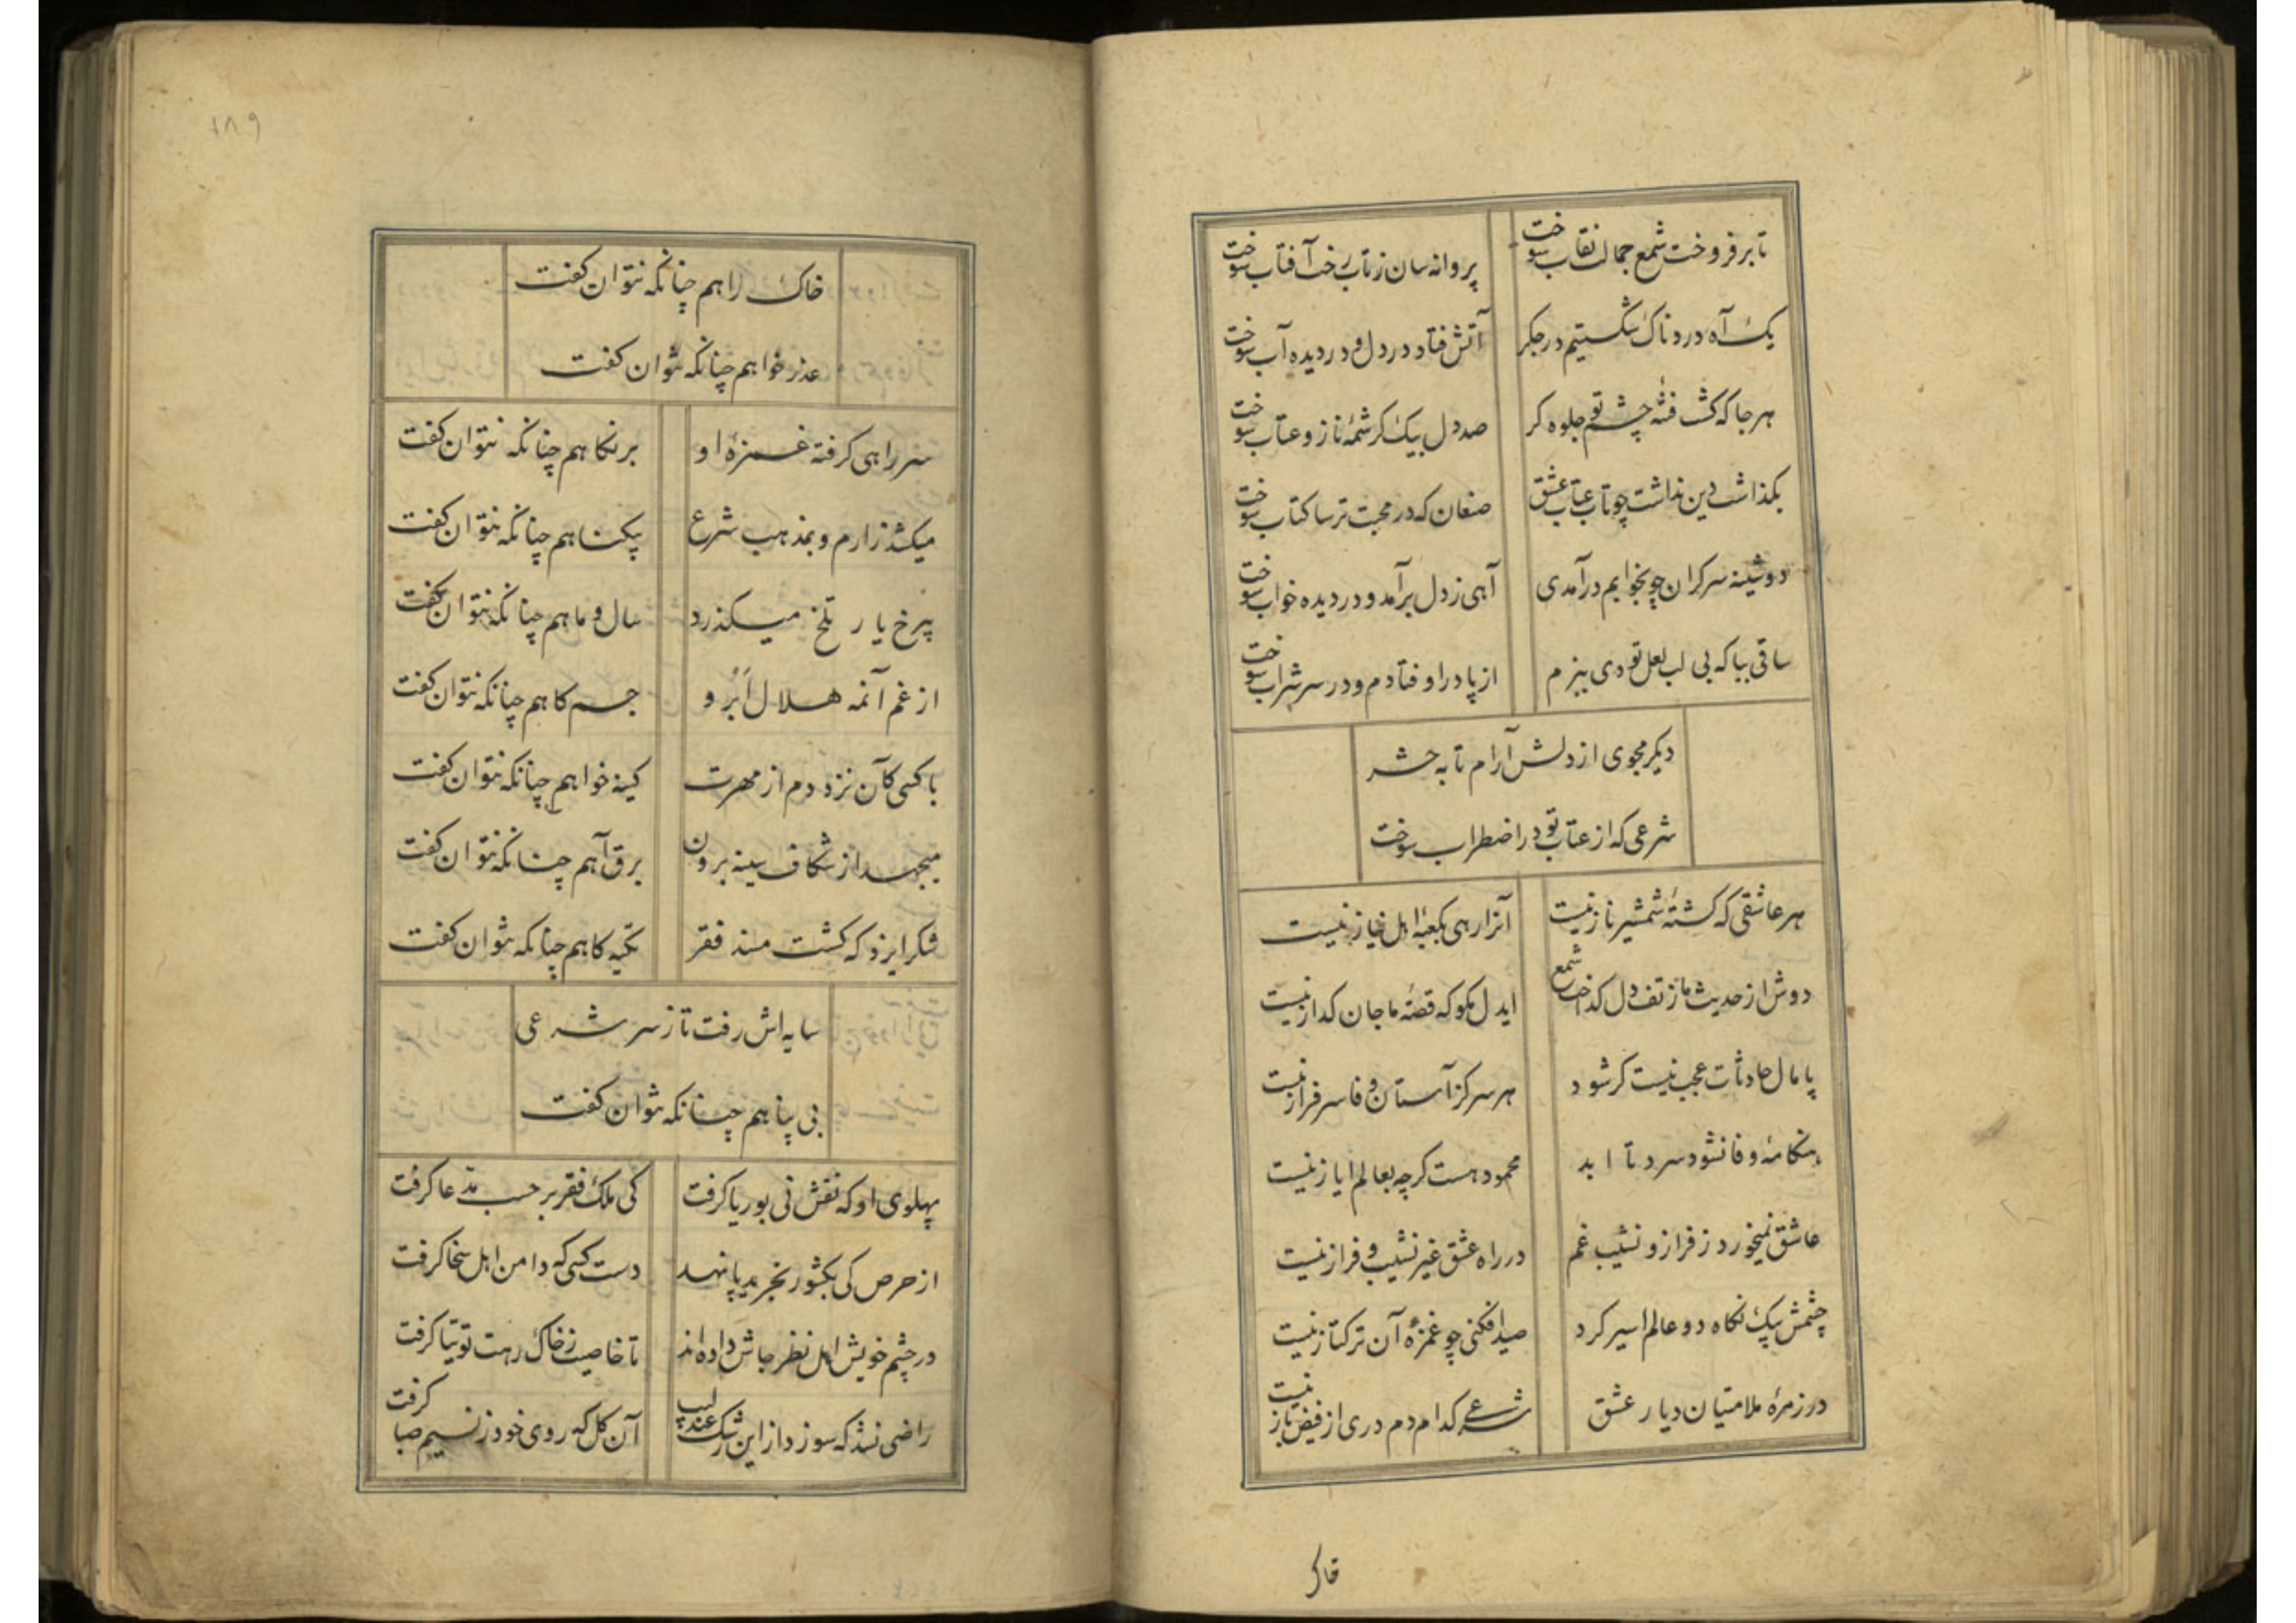 تا بر فروخت شمع جمالت نقاب سوخت
پروانه سان ز تاب رخت آفتاب سوخت
یک آه دردناک شکستیم در جکر
آتش فتاد در دل و در دیده آب سوخت
هر جا که کشت فتنه چشم تو جلوه کر
صد دل بیک کرشمهٔ ناز و عتاب سوخت
بکذاشت دین نداشت چو تاب عتاب عشق
صنعان که در محبت ترسا کتاب سوخت
دوشینه سرکران چو بخوابم درآمدی
آهی ز دل برآمد و در دیده خواب سوخت
ساقی بیا که بی لب لعل تو دی ببزم
از پا در اوفتادم و در سر شراب سوخت
دیکر مجوی از دلش آرام تا به حشر
شرعی که از عتاب تو در اضطراب سوخت
هر عاشقی که کشتهٔ شمشیر ناز نیست
آنرا رهی بکعبهٔ اهل نیاز نیست
دوش از حدیث ما ز تف دل کداخت شمع
ایدل مکو که قصهٔ ما جان کداز نیست
پامال حادثات عجب نیست کر شود
هر سر کز آستان وفا سرفراز نیست
هنکامهٔ وفا نشود سرد تا ابد
محمود هست کرچه بعالم ایاز نیست
عاشق نمیخورد ز فراز و نشیب غم
در راه عشق غیر نشیب و فراز نیست
چشمش بیک نکاه دو عالم اسیر کرد
صید افکنی چو غمزهٔ آن ترکتاز نیست
در زمرهٔ ملامتیان دیار عشق
شرعی کدام دم دری از فیض باز نیست
۱۸۹
خاک راهم چنانکه نتوان کفت
عذر خواهم چنانکه نتوان کفت
سر راهی کرفته غمزهٔ او
بر نکاهم چنانکه نتوان کفت
میکشد زارم و بمذهب شرع
بیکناهم چنانکه نتوان کفت
بیرخ یار تلخ میکذرد
سال و ماهم چنانکه نتوان کفت
از غم آنمه هلال اَبْرو
جسم کاهم چنانکه نتوان کفت
با کسی کآن نزد دم از مهرت
کینه خواهم چنانکه نتوان کفت
میجهد از شکاف سینه برون
برق آهم چنانکه نتوان کفت
شکر ایزد که کشت مسند فقر
تکیه کاهم چنانکه نتوان کفت
سایه اش رفت تا ز سر شرعی
بی پناهم چنانکه نتوان کفت
پهلوی او که نقش نی بوریا کرفت
کی ملک فقر بر حسب مدعا کرفت
از حرص کی بکشور تجرید پا نهد
دست کسی که دامن اهل سخا کرفت
در چشم خویش اهل نظر جاش داده اند
تا خاصیت ز خاک رهت توتیا کرفت
راضی نشد که سوزد از این رشک عندلیب
آن کل که روی خود ز نسیم صبا کرفت